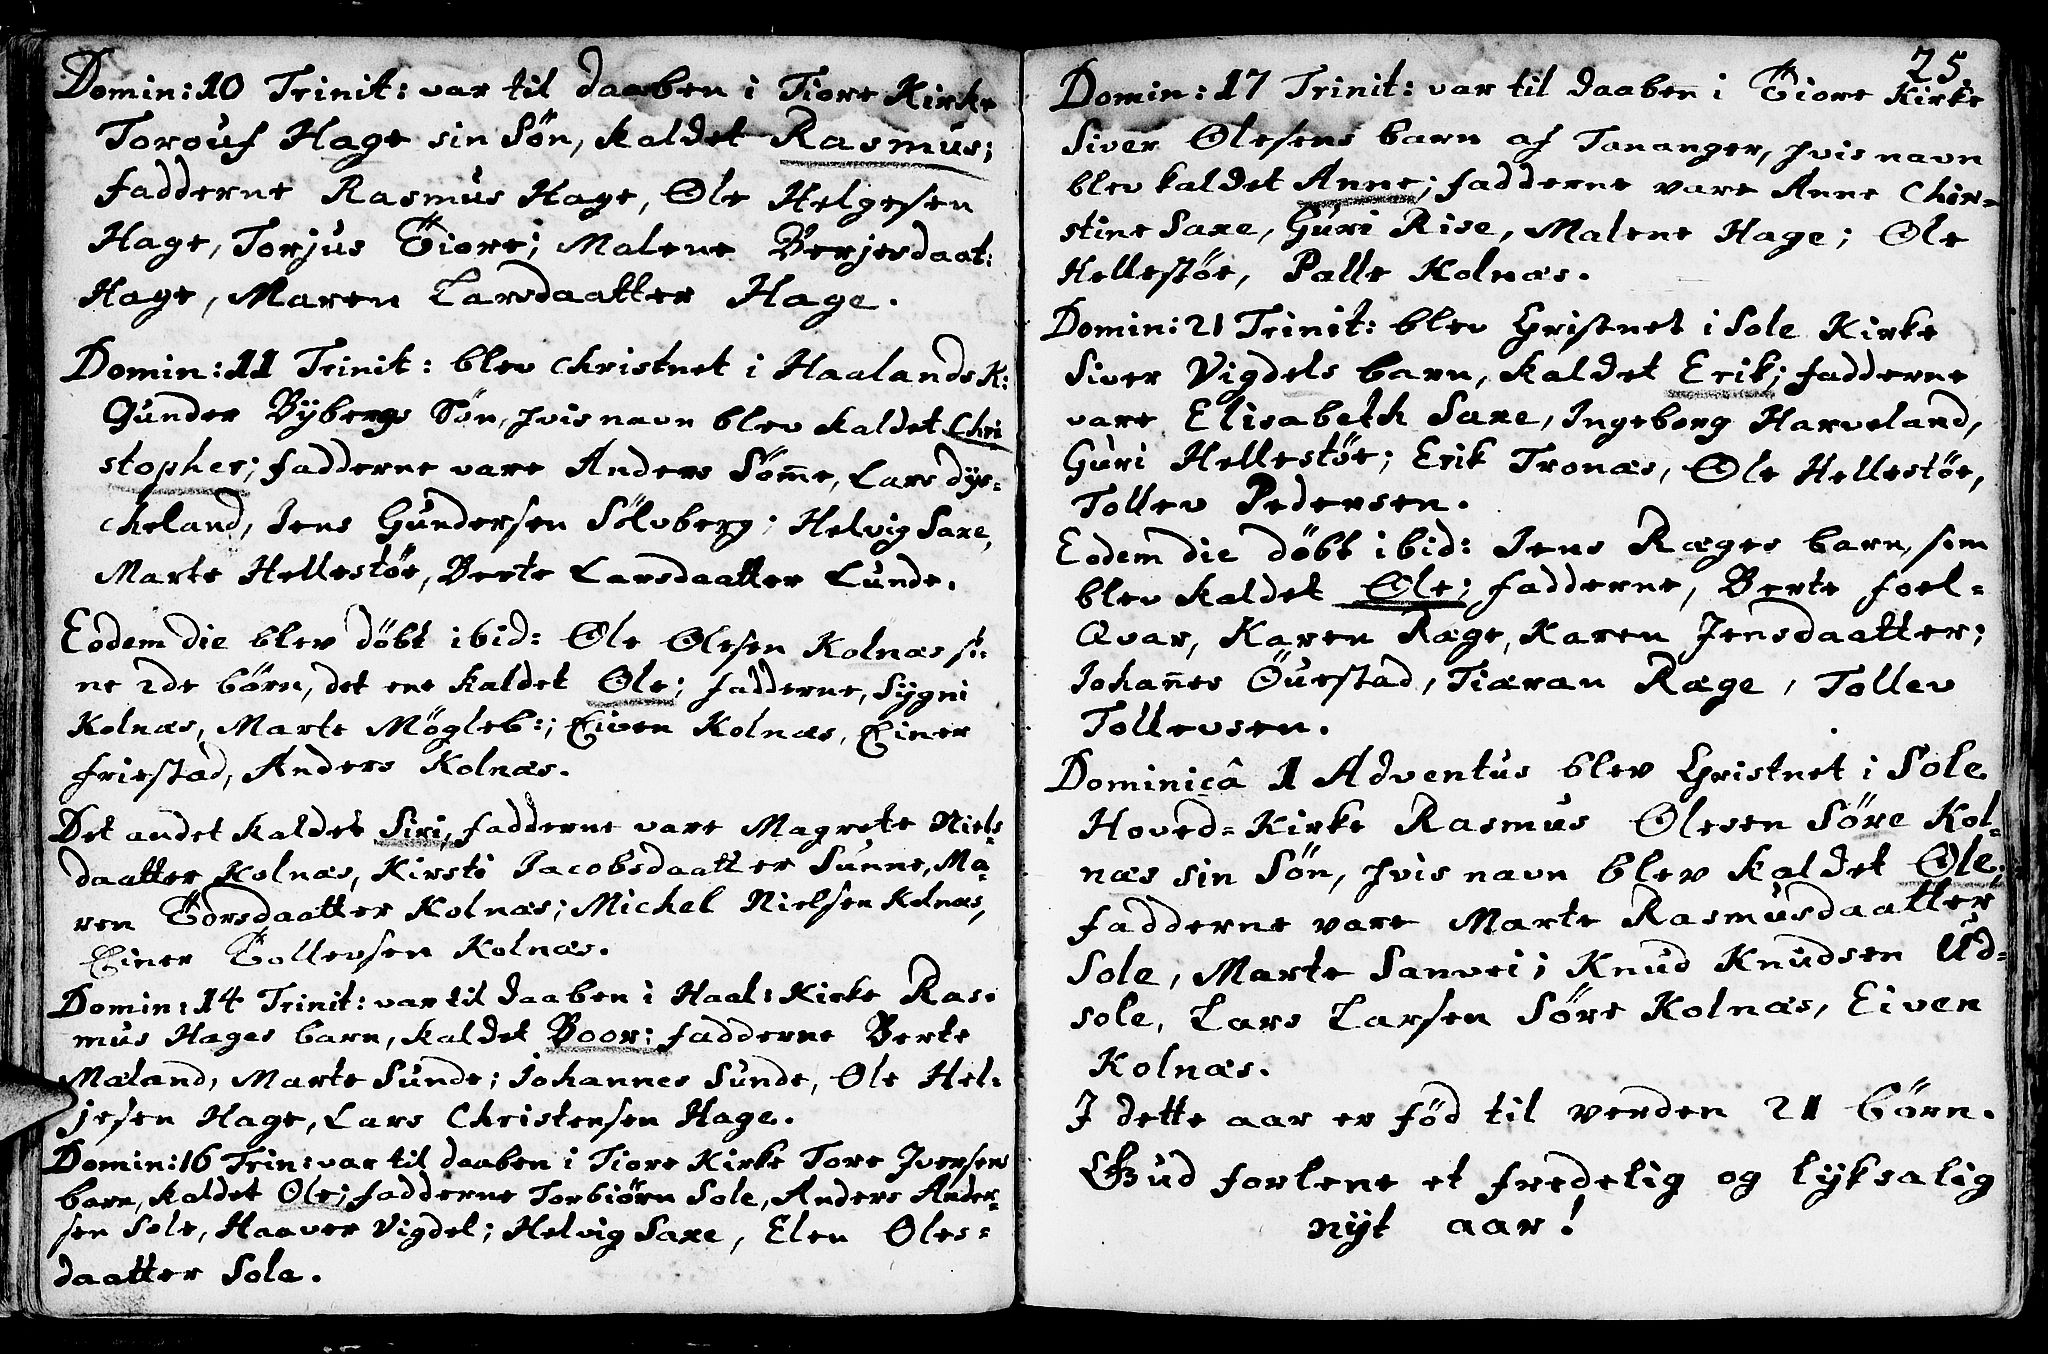 Domin: 10 Trinit: var til daaben i Tiore Kirke
Torouf Hage sin Sön, kaldet Rasmus;
fadderne Rasmus Hage, Ole Helgesen
Hage, Torjus Tiore; Malene Berjesdaat:
Hage, Maren Larsdaatter Hage.
Domin: 11 Trinit: blev christnet i Haalands K:
Gunder Bybergs Sön, hvis navn blev kaldet Chri
stopher; fadderne vare Anders Söm̅e, Lars dys-
cheland, Jens Gundersen Sölvberg; Helvig Saxe,
Marte Hellestöe, Berte Larsdaatter Lunde.
Eodem die blev döbt ibid: Ole Olesen Kolnæs si-
ne 2de börn, det ene kaldet Ole; fadderne, Sygni
Kolnæs, Marte Mögleb:; Eiven Kolnæs, Einer
friestad, Anders Kolnæs.
Det andet kaldet Siri, fadderne vare Magrete Niels
daatter Kolnæs, Kirsti Jacobsdaatter Sunne, Ma-
ren Torsdaatter Kolnæs; Michel Nielsen Kolnæs,
Einer Tollevsen Kolnæs.
Domin: 14 Trinit: var til daaben i Haal: Kirke Ras-
mus Hages barn, kaldet Boor; fadderne Berte
Mæland, Marte Sunde; Johannes Sunde, Ole Hel-
jesen Hage, Lars Christensen Hage.
Domin: 16 Trin: var til daaben i Tiore Kirke Tore Iversens
barn, kaldet Ole; fadderne Torbiörn Sole, Anders Ander-
sen Sole, Haaver Vigdel; Helvig Saxe, Elen Oles=
daatter Sole.
25.
Domin: 17 Trinit: var til daaben i Tiore Kirke
Siver Olesens barn af Tananger, hvis navn
blev kaldet Anne; fadderne vare Anne Chir=
stine Saxe, Guri Rise, Malene Hage; Ole
Hellestöe, Palle Kolnæs.
Domin: 21 Trinit: blev Christnet i Sole Kirke
Siver Vigdels barn, kaldet Erik; fadderne
vare Elisabeth Saxe, Ingeborg Harveland,
Guri Hellestöe; Erik Tronæs, Ole Hellestöe,
Tollev Pedersen.
Eodem die döbt ibid: Jens Ræges barn, som
blev kaldet Ole; fadderne, Berte foel=
Qvar, Karen Ræge, Karen Jensdaatter;
Johan̅es Öuestad, Tiæran Ræge, Tollev
Tollevsen.
Dominicâ 1 Adventus blev Christnet i Sole
Hoved=Kirke Rasmus Olesen Söre Kol=
næs sin Sön, hvis navn blev kaldet Ole;
fadderne vare Marte Rasmusdaatter
Sole, Marte Sanvei; Knud Knudsen Ud=
sole, Lars Larsen Söre Kolnæs, Eiven
Kolnæs.
I dette aar er föd til verden 21 börn.
Gud forlene et fredelig og lyksalig
nyt aar!